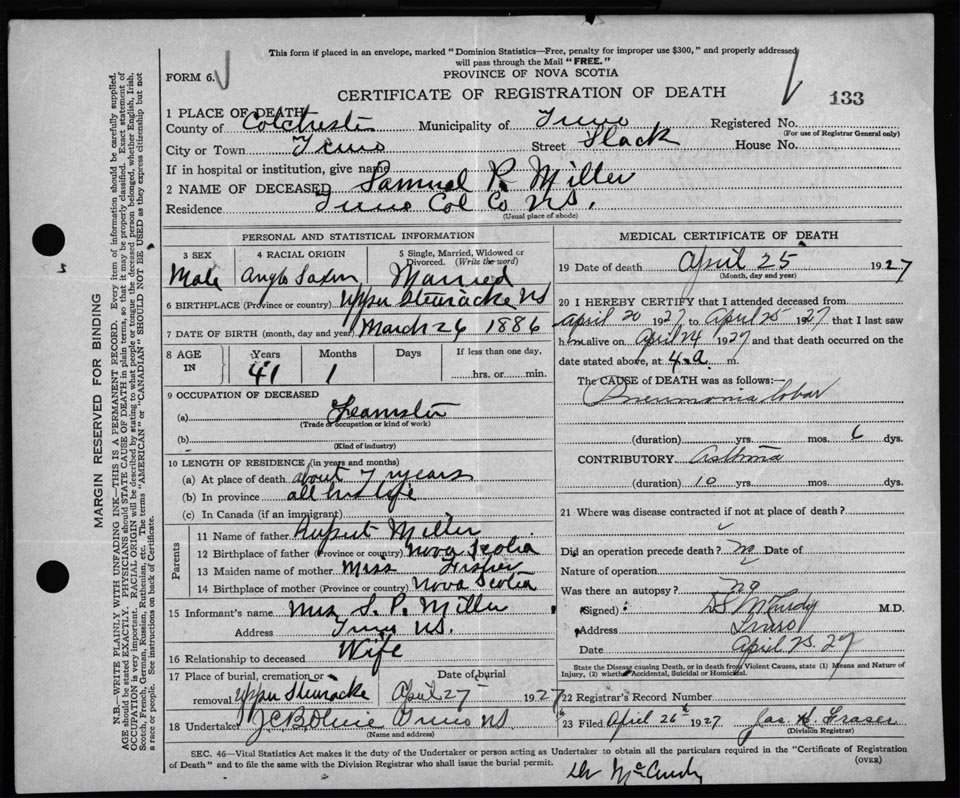 This form if placed in an envelope, marked "Dominion Statistics—Free, penalty for improper use $300," and properly addressed
will pass through the Mail "FREE."
FORM 6.
PROVINCE OF NOVA SCOTIA
CERTIFICATE OF REGISTRATION OF DEATH
133
1 PLACE OF DEATH
County of Colchester Municipality of Truro Registered No.
(For use of Registrar General only)
City or Town Truro Street Slack House No.
If in hospital or institution, give name
2 NAME OF DECEASED Samuel P. Miller
Residence Truro Col Co N.S.
(Usual place of abode)
PERSONAL AND STATISTICAL INFORMATION
3 SEX 4 RACIAL ORIGIN 5 Single, Married, Widowed or
Divorced. (Write the word)
Male Anglo Saxon Married
6 BIRTHPLACE (Province or country) Upper Stewiacke NS
7 DATE OF BIRTH (month, day and year) March 26 1886
8 AGE IN Years Months Days If less than one day,
41 1 hrs. or min.
9 OCCUPATION OF DECEASED
(a) Teamster
(Trade or occupation or kind of work)
(b)
(Kind of industry)
10 LENGTH OF RESIDENCE (in years and months)
(a) At place of death about 7 years
(b) In province all his life
(c) In Canada (if an immigrant)
Parents
11 Name of father Rupert Miller
12 Birthplace of father (Province or country) Nova Scotia
13 Maiden name of mother Miss Frasier
14 Birthplace of mother (Province or country) Nova Scotia
15 Informant's name Mrs S. P. Miller
Address Truro NS.
16 Relationship to deceased Wife
17 Place of burial, cremation or removal Date of burial
Upper Stewiacke April 27 1927
18 Undertaker Truro NS
(Name and address)
MEDICAL CERTIFICATE OF DEATH
19 Date of death April 25 1927
(Month, day and year)
20 I HEREBY CERTIFY that I attended deceased from
April 20 1927 to April 25 1927 that I last saw
him alive on April 24 1927 and that death occurred on the
date stated above, at 4 a m.
The CAUSE of DEATH was as follows:—
Pneumonia lobar
(duration) yrs. mos. 6 dys.
CONTRIBUTORY Asthma
(duration) 10 yrs. mos. dys.
21 Where was disease contracted if not at place of death?
Did an operation precede death? no Date of
Nature of operation
Was there an autopsy? no
(Signed) McCurdy M.D.
Address Truro
Date April 25. 27
State the Disease causing Death, or in death from Violent Causes, state (1) Means and Nature of
Injury, (2) whether Accidental, Suicidal or Homicidal.
22 Registrar's Record Number
23 Filed April 26th 1927 Jas. H. Fraser
(Division Registrar)
SEC. 46—Vital Statistics Act makes it the duty of the Undertaker or person acting as Undertaker to obtain all the particulars required in the "Certificate of Registration
of Death" and to file the same with the Division Registrar who shall issue the burial permit.
(OVER)
Dr McCurdy
MARGIN RESERVED FOR BINDING
N.B.—WRITE PLAINLY WITH UNFADING INK—THIS IS A PERMANENT RECORD. Every item of information should be carefully supplied.
AGE should be stated EXACTLY. PHYSICIANS should STATE CAUSE OF DEATH in plain terms, so that it may be properly classified. Exact statement of
OCCUPATION is very important. RACIAL ORIGIN will be described by stating to what people or tongue the deceased person belonged, whether English, Irish,
Scotch, French, German, Russian, Ruthenian, etc. The terms "AMERICAN" or "CANADIAN" SHOULD NOT BE USED as they express citizenship but not
a race or people. See instructions on back of Certificate.